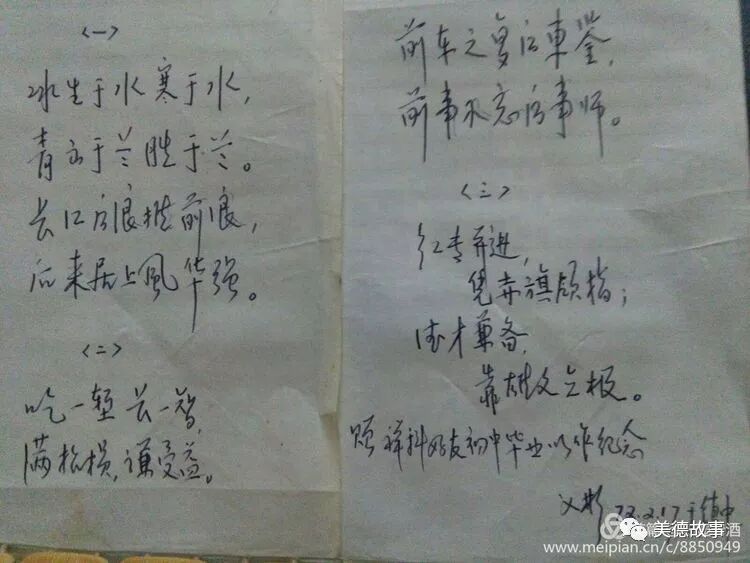 <一>
冰生于水寒于水,
青出于兰胜于兰。
长江后浪推前浪,
后来居上風华强。
<二>
吃一堑长一智,
满招损,谦受益。
前车之复后車鉴,
前事不忘后事师。
<三>
红专并进,
凭赤旗颀指;
德才兼备,
靠雄文立极。
赠祥科好友初中毕业以作纪念
2.17于镇中
酒
美德故事
www.meipian.cn/c/8850949